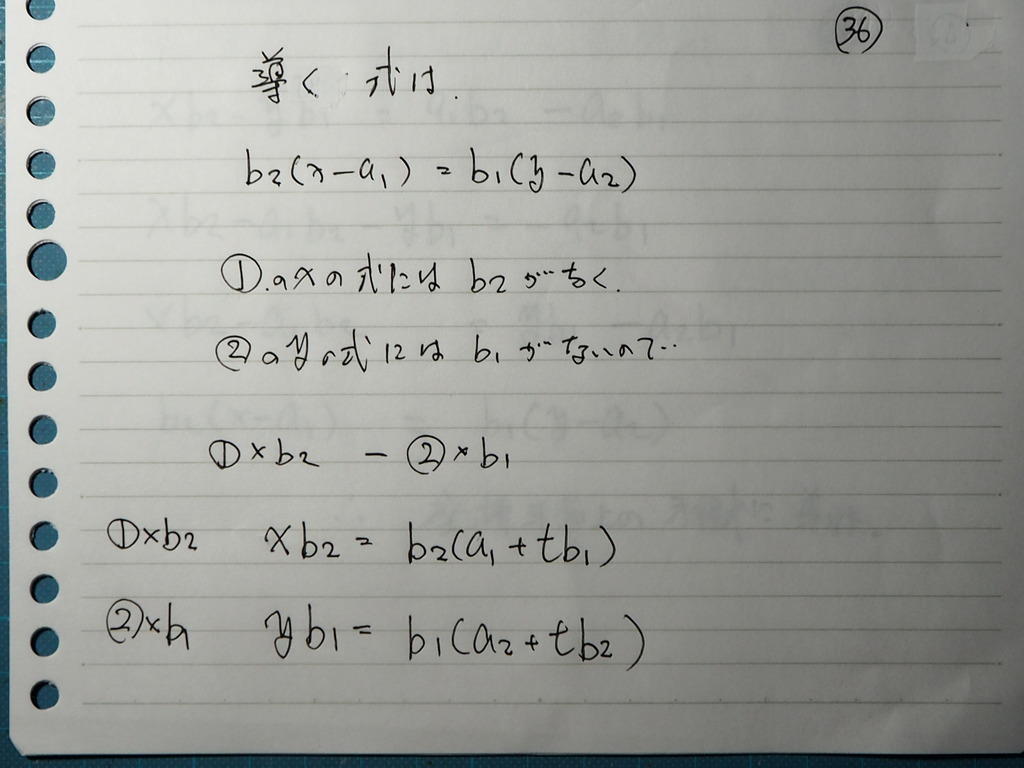 36
導く 式は.
b₂(x-a₁) = b₁(y-a₂)
①.のxの式には b₂が なく.
②のyの式には b₁が ないので…
①×b₂ - ②×b₁
①×b₂ xb₂ = b₂(a₁+tb₁)
②×b₁ yb₁ = b₁(a₂+tb₂)